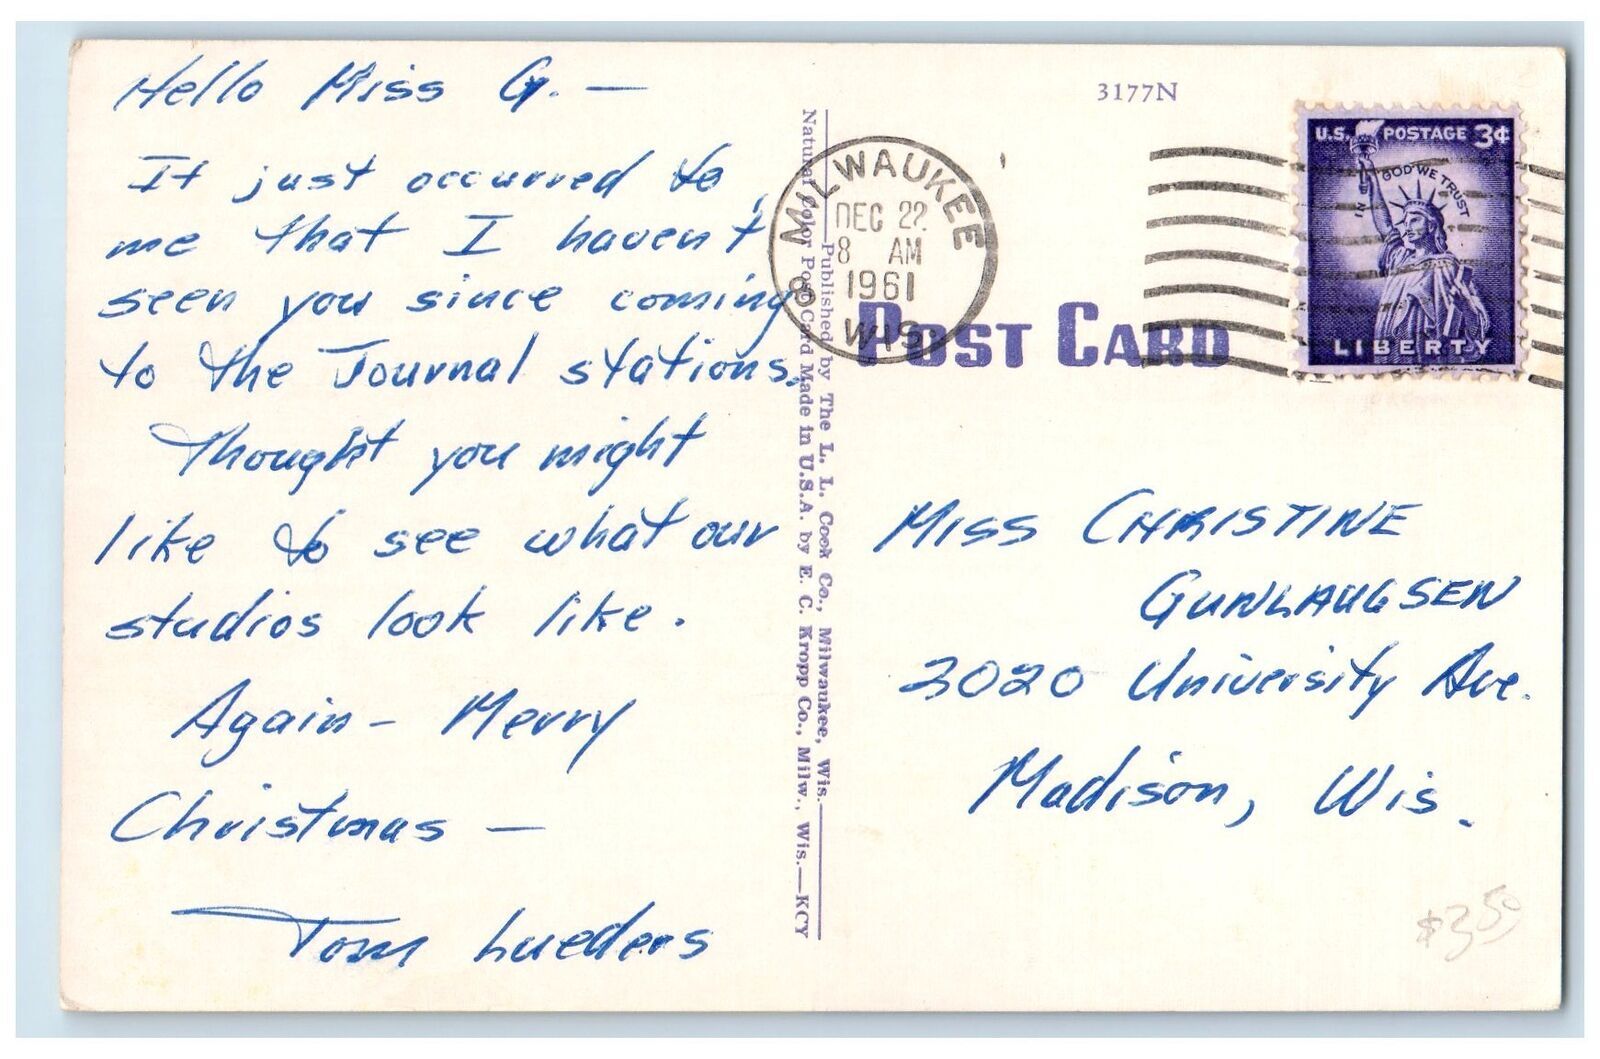 Hello Miss G. —
It just occurred to
me that I haven't
seen you since coming
to the Journal stations.
Thought you might
like to see what our
studios look like.
Again - Merry
Christmas —
Tom Lueders
Natural Color Post Card Made in U.S.A. by E. C. Kropp Co., Milw., Wis.—KCY
Published by The L. L. Cook Co., Milwaukee, Wis.
3177N
MILWAUKEE
DEC 22
8 AM
1961
WIS.
8
U.S. POSTAGE 3¢
IN GOD WE TRUST
LIBERTY
POST CARD
MISS CHRISTINE
GUNLAUGSEN
2020 University Ave.
Madison, Wis.
$3.50